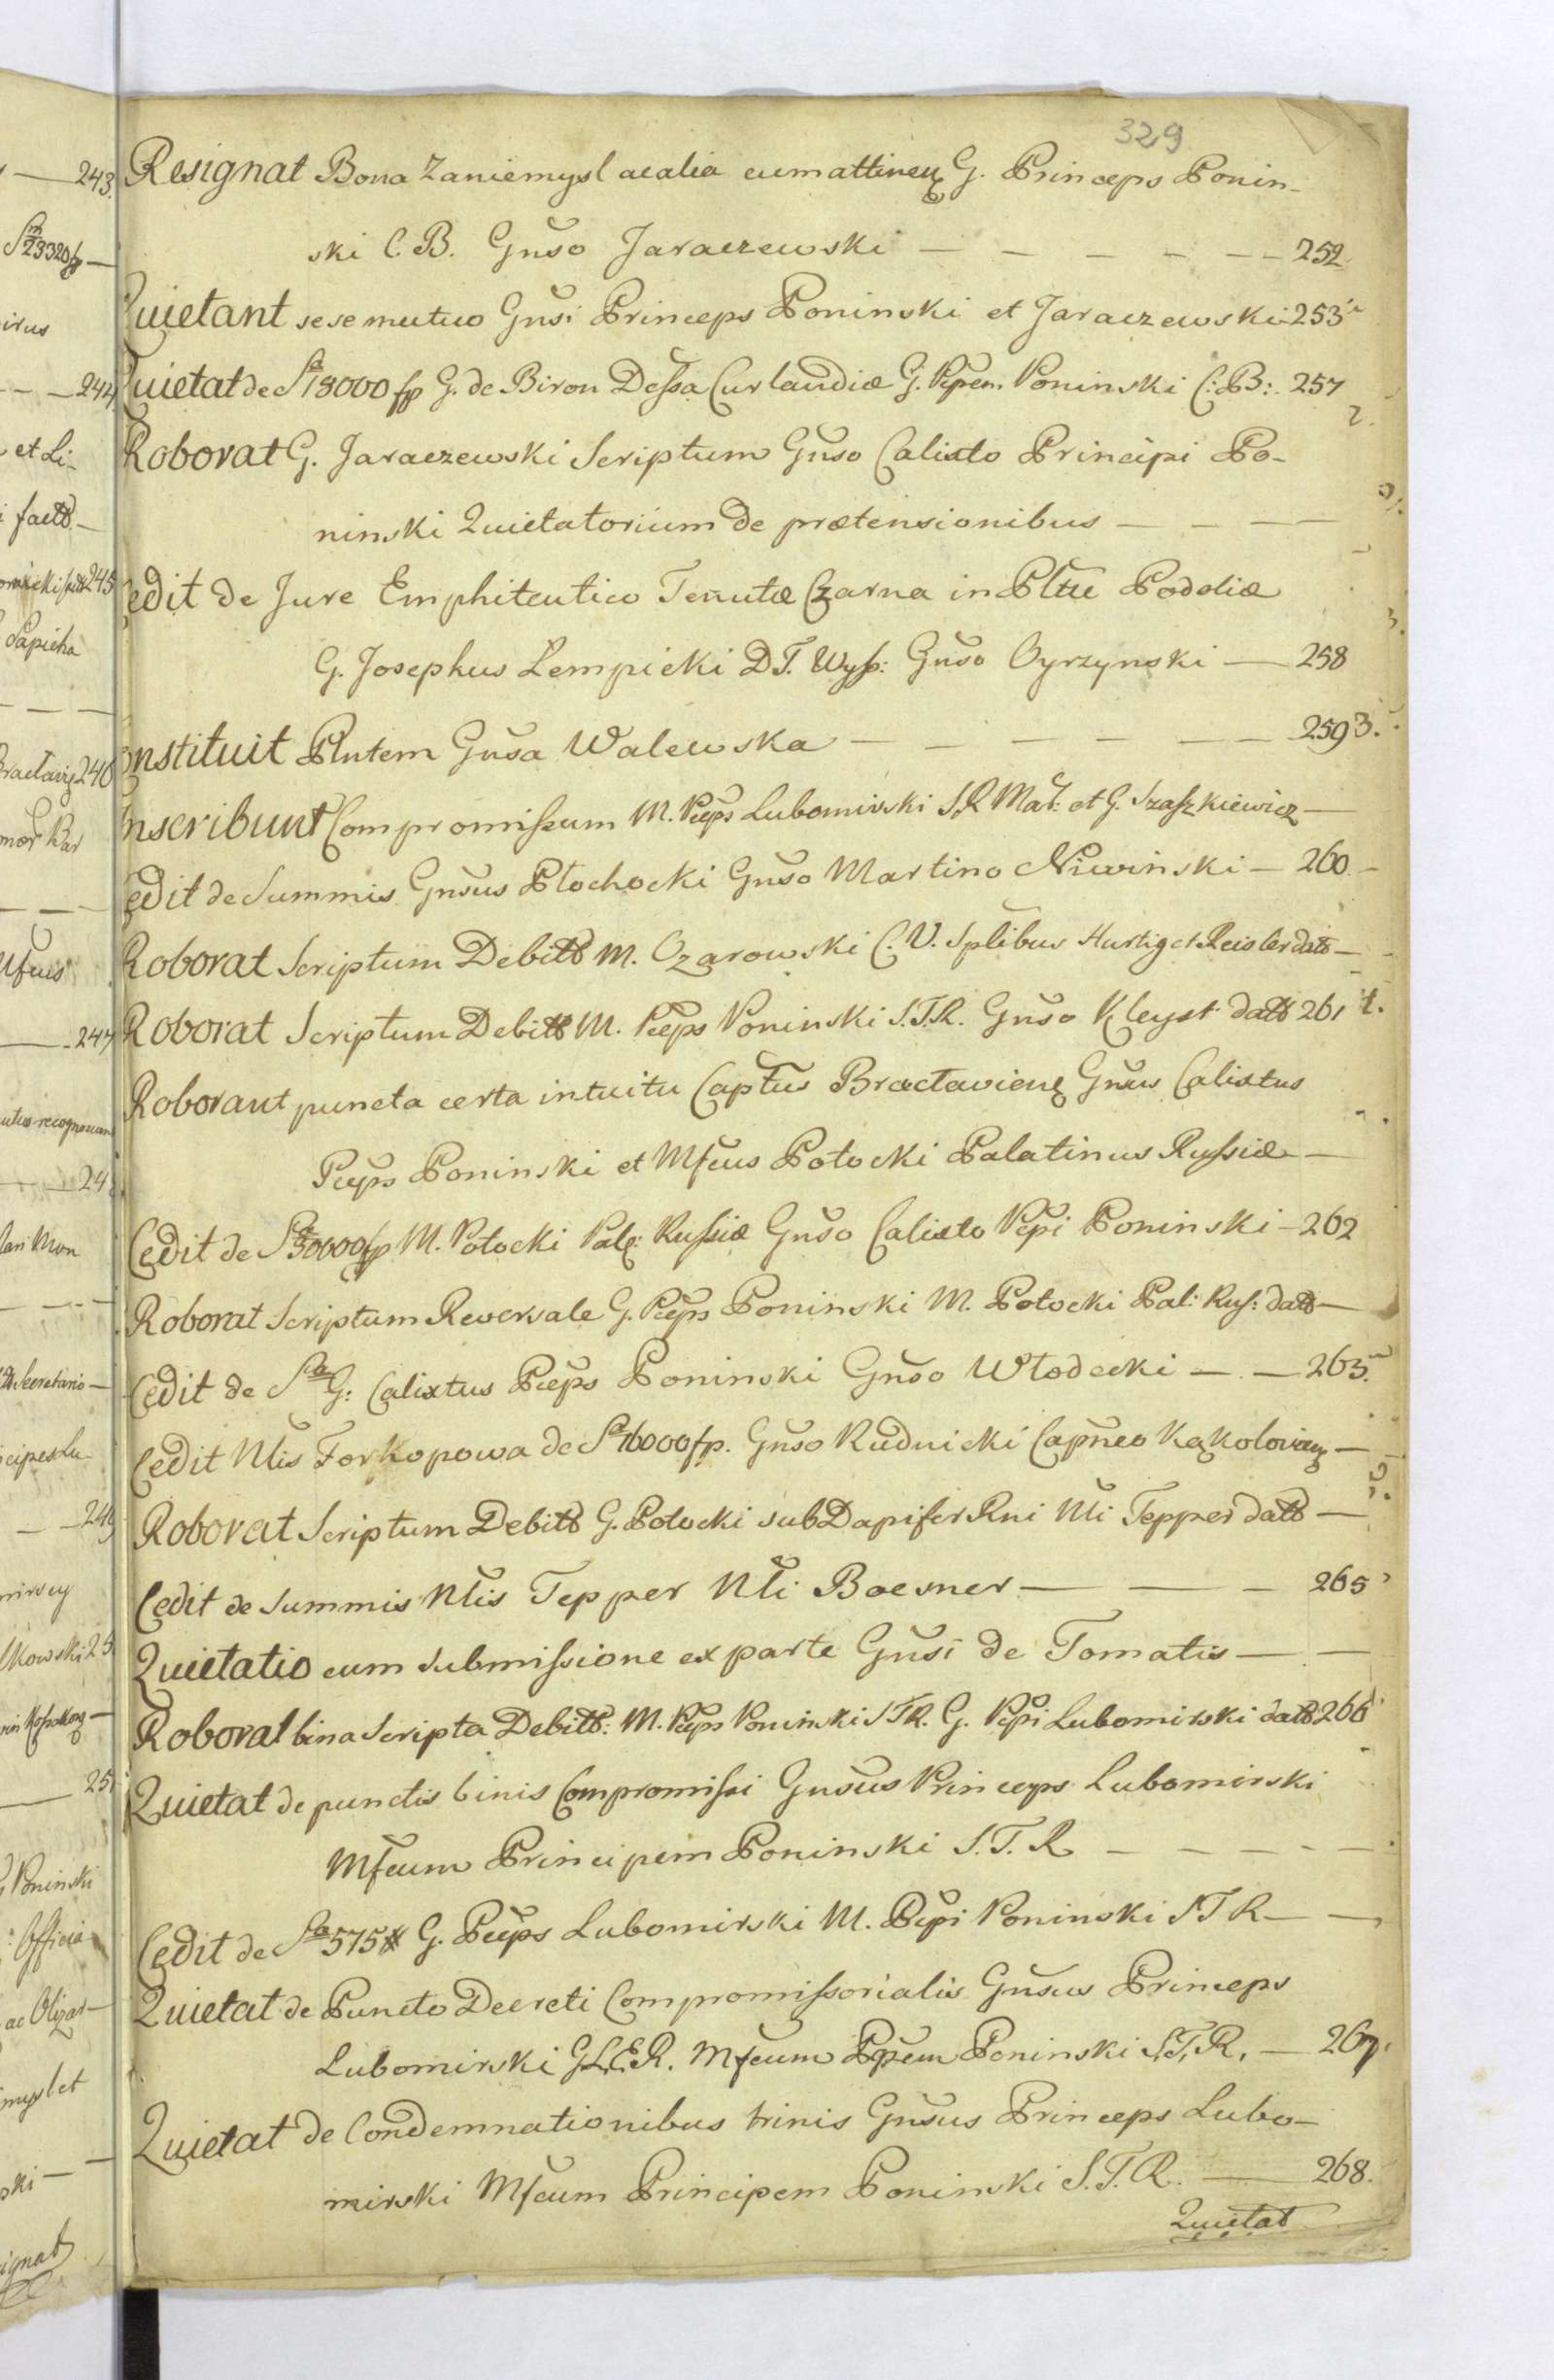 329
Resignat Bona Zaniemysl acalia cum attinen G. Princeps Ponin-
ski C.B. Gnso Jaraczewski — — — — — 252
Quietant sese mutuo Gnsi Princeps Poninski et Jaraczewski 253
Quietat de Sa 18000 fp G. de Biron Dessa Curlandiæ G. Pcpem Poninski C:B: 257
Roborat G. Jaraczewski Scriptum Gnso Calixto Principi Po-
ninski Quietatorium de prætensionibus — — — —
Cedit de Jure Emphiteutico Tenutæ Czarna in Pltu Podoliæ
G. Josephus Lempicki D.T. Wyss: Gnso Oyrzynski — 258
Constituit Plutem Gnsa Walewska — — — — — 259
Inscribunt Compromissum M. Pceps Lubomirski S.R. Mat: et G. Szaszkiewicz —
Cedit de Summis Gnsus Plochocki Gnso Martino Niwinski — 260
Roborat Scriptum Debiti M. Ozarowski C.V. Splibus Hurtig et Reisler dat —
Roborat Scriptum Debiti M. Pceps Poninski S.T.R. Gnso Kleyst dat 261
Roborant puncta certa intuitu Captus Bractavien Gnsus Calixtus
Pceps Poninski et Mfcus Potocki Palatinus Russiæ —
Cedit de Sa 50000 fp M. Potocki Pal: Russiæ Gnso Calixto Pcpi Poninski — 262
Roborat Scriptum Reversale G. Pceps Poninski M. Potocki Pal: Rus: dat —
Cedit de Sa G: Calixtus Pceps Poninski Gnso Wlodecki — — 263
Cedit Nlis Forkopowa de Sa 16000 fp. Gnso Rudnicki Capneo Kąkolovien —
Roborat Scriptum Debiti G. Potocki subDapifer Rni Nli Tepper dat —
Cedit de Summis Nlis Tepper Nli Boesner — — — 265
Quietatio cum submissione ex parte Gnsi de Tomatis — —
Roborat bina Scripta Debiti: M. Pceps Poninski S.T.R. G. Pcpi Lubomirski dat 266
Quietat de punctis binis Compromissi Gnsus Princeps Lubomirski
Mfcum Principem Poninski S.T.R — — — — —
Cedit de Sa 575 G. Pceps Lubomirski M. Pcpi Poninski S T R — —
Quietat de Puncto Decreti Compromissorialis Gnsus Princeps
Lubomirski G.L.E.R. Mfcum Pcpem Poninski S.T.R. — 267
Quietat de Condemnationibus trinis Gnsus Princeps Lubo-
mirski Mfcum Principem Poninski S.T.R. — 268.
Quietat